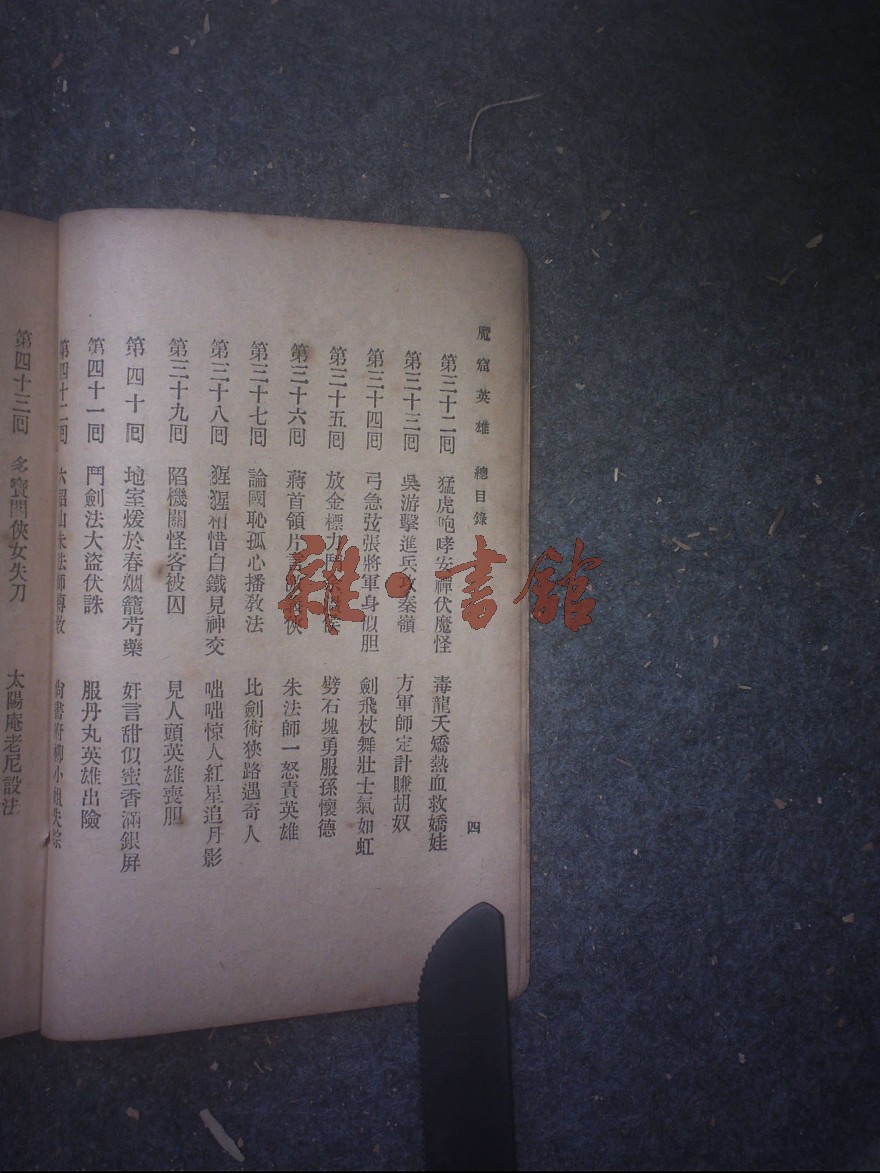 魔窟英雄 總目錄 四
第三十二回 猛虎咆哮安禪伏魔怪 毒龍夭矯熱血救嬌娃
第三十三回 吳游擊進兵攻秦嶺 方軍師定計賺胡奴
第三十四回 弓急弦張將軍身似胆 劍飛杖舞壯士氣如虹
第三十五回 放金標力鬥 劈石塊勇服孫懷德
第三十六回 蔣首領片言 俠 朱法師一怒責英雄
第三十七回 論國恥孤心播教法 比劍術狹路遇奇人
第三十八回 猩猩相惜白鐵見神交 咄咄惊人紅星追月影
第三十九回 陷機關怪客被囚 見人頭英雄喪胆
第四十回 地室煖於春烟籠芍藥 奸言甜似蜜香滿銀屏
第四十一回 鬥劍法大盜伏誅 服丹丸英雄出險
第四十二回 六韶山朱法師傳教 尚書府柳小姐失踪
第四十三回 多寶閣俠女失刀 太陽庵老尼設法
雜·書館